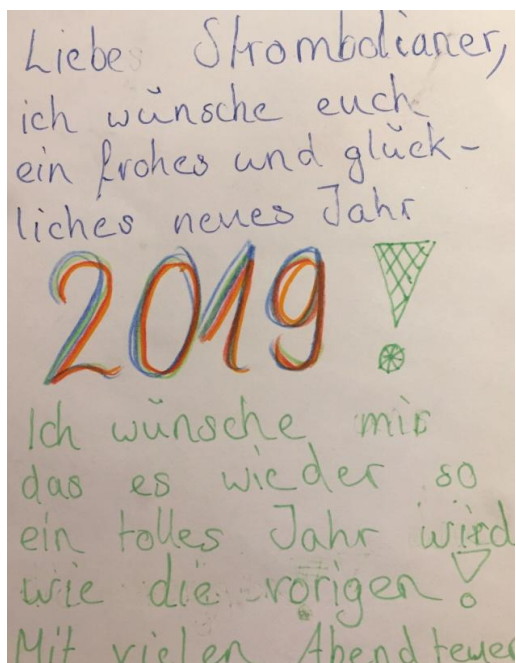 Liebe Strombolianer,
ich wünsche euch
ein frohes und glück-
liches neues Jahr
2019!
Ich wünsche mir
das es wieder so
ein tolles Jahr wird
wie die vorigen!
Mit vielen Abendteuer